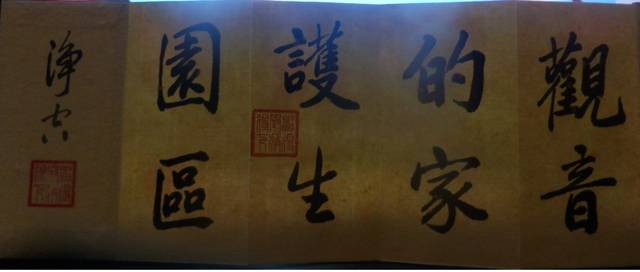 觀音
的家
護生
園區
淨空